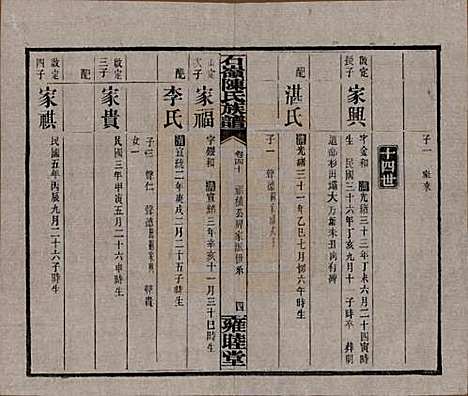 子一 家來
十四世
啟定子 家興 字金和 清光緒三十三年丁未六月二十四寅時
生 民國三十六年丁亥九月十 子時卒 葬朝
道廟杉田壩大 未丑向有碑
配 湛氏 清光緒三十一年乙巳七月 六午時生
子一 聲德
石嶺陳氏族譜
卷四十
四
雍睦堂
定次子 家福 字鏝和 清宣統三年辛亥十一月三十巳時生
配 李氏 清宣統二年庚戌二月二十五子時生
子三 聲仁 聲德 聲貴
女一
啟定三子 家貴 民國三年甲寅五月二十六申時生
配
啟定四子 家祺 民國五年丙辰九月二十六子時生